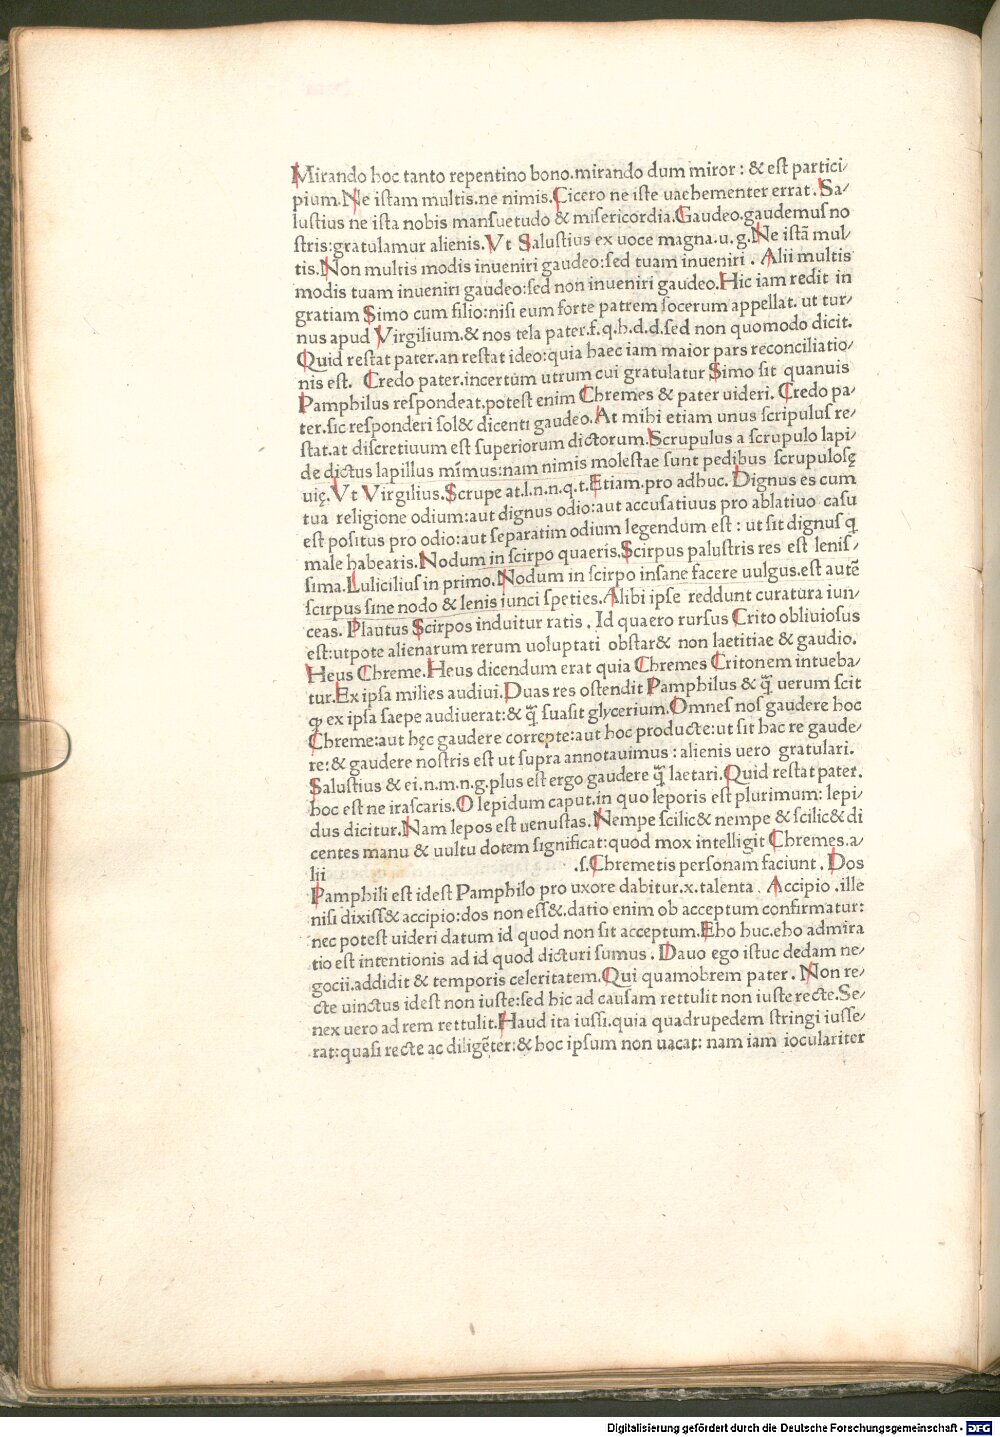 Mirando hoc tanto repentino bono.mirando dum miror : & est partici/
pium.Ne istam multis.ne nimis.Cicero ne iste uaehementer errat.Sa/
lustius ne ista nobis mansuetudo & misericordia.Gaudeo.gaudemus no
stris:gratulamur alienis.Vt Salustius ex uoce magna.u.g.Ne istã mul/
tis.Non multis modis inueniri gaudeo:sed tuam inueniri . Alii multis
modis tuam inueniri gaudeo:sed non inueniri gaudeo.Hic iam redit in
gratiam Simo cum filio:nisi eum forte patrem socerum appellat. ut tur/
nus apud Virgilium.& nos tela pater.f.q.h.d.d.sed non quomodo dicit.
Quid restat pater.an restat ideo:quia haec iam maior pars reconciliatio/
nis est. Credo pater.incertum utrum cui gratulatur Simo sit quanuis
Pamphilus respondeat.potest enim Chremes & pater uideri. Credo pa/
ter.sic responderi sol& dicenti gaudeo.At mihi etiam unus scripulus re/
stat.at discretiuum est superiorum dictorum.Scrupulus a scrupulo lapi/
de dictus lapillus mĩmus:nam nimis molestae sunt pedibus scrupulosę
uię.Vt Virgilius.Scrupe at.l.n.n.q.t.Etiam.pro adhuc. Dignus es cum
tua religione odium:aut dignus odio:aut accusatiuus pro ablatiuo casu
est positus pro odio:aut separatim odium legendum est : ut sit dignus ꝗ
male habearis.Nodum in scirpo quaeris.Scirpus palustris res est lenis/
sima.Lulicilius in primo.Nodum in scirpo insane facere uulgus.est autẽ
scirpus sine nodo & lenis iunci speties.Alibi ipse reddunt curatura iun/
ceas. Plautus Scirpos induitur ratis . Id quaero rursus Crito obliuiosus
est:utpote alienarum rerum uoluptati obstar& non laetitiae & gaudio.
Heus Chreme.Heus dicendum erat quia Chremes Critonem intueba/
tur.Ex ipsa milies audiui.Duas res ostendit Pamphilus & q̃ uerum scit
ꝙ ex ipsa saepe audiuerat:& q̃ suasit glycerium.Omnes nos gaudere hoc
Chreme:aut hęc gaudere correpte:aut hoc producte:ut sit hac re gaude/
re:& gaudere nostris est ut supra annotauimus : alienis uero gratulari.
Salustius & ei.n.m.n.g.plus est ergo gaudere q̃ laetari.Quid restat pater.
hoc est ne irascaris.O lepidum caput.in quo leporis est plurimum: lepi/
dus dicitur.Nam lepos est uenustas.Nempe scilic& nempe & scilic& di
centes manu & uultu dotem significat:quod mox intelligit Chremes.a/
lii .s.Chremetis personam faciunt . Dos
Pamphili est idest Pamphilo pro uxore dabitur.x.talenta . Accipio .ille
nisi dixiss& accipio:dos non ess&.datio enim ob acceptum confirmatur:
nec potest uideri datum id quod non sit acceptum.Eho huc.eho admira
tio est intentionis ad id quod dicturi sumus . Dauo ego istuc dedam ne/
gocii.addidit & temporis celeritatem.Qui quamobrem pater . Non re/
cte uinctus idest non iuste:sed hic ad causam rettulit non iuste recte.Se/
nex uero ad rem rettulit.Haud ita iussi.quia quadrupedem stringi iusse/
rat:quasi recte ac diligẽter:& hoc ipsum non uacat: nam iam ioculariter
Digitalisierung gefördert durch die Deutsche Forschungsgemeinschaft - DFG